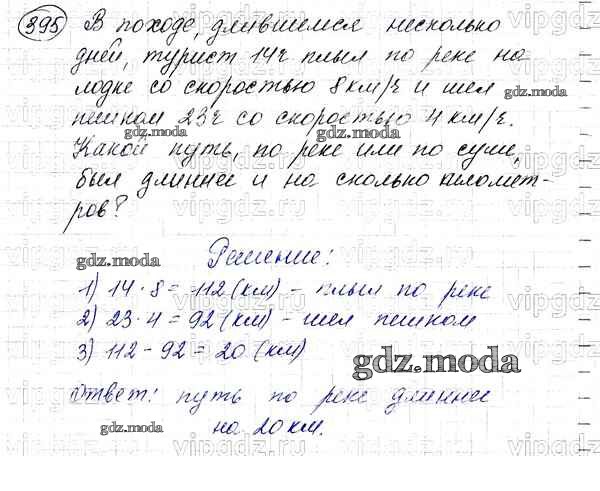 395 В походе, длившемся несколько
дней, турист 14ч плыл по реке на
лодке со скоростью 8 км/ч и шел
пешком 23ч со скоростью 4 км/ч.
Какой путь, по реке или по суше,
был длиннее и на сколько километ-
ров?
Решение:
1) 14 · 8 = 112 (км) - плыл по реке
2) 23 · 4 = 92 (км) - шел пешком
3) 112 - 92 = 20 (км)
Ответ: путь по реке длиннее
на 20 км.
gdz.moda
gdz.moda
gdz.moda
gdz.moda
gdz.moda
gdz.moda
gdz.moda
gdz.moda